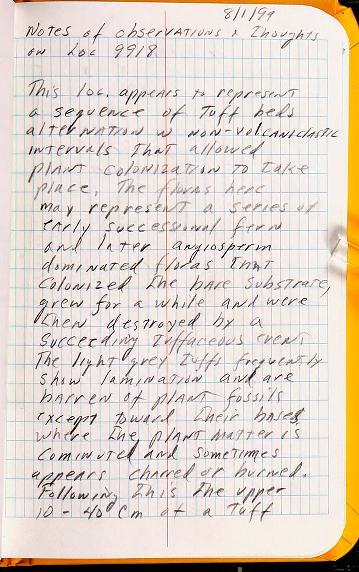 8/1/99
Notes of observations & Thoughts
on Loc 9918
This loc. appears to represent
a sequence of Tuff beds
alternation w non-volcaniclastic
intervals That allowed
plant colonization To Take
place. The floras here
may represent a series of
early successional fern
and later angiosperm
dominated floras That
colonized The bare substrate,
grew for a while and were
Then destroyed by a
succeeding Tuffaceous event
The light grey Tuffs frequently
show lamination and are
barren of plant fossils
except Toward Their bases
where The plant matter is
cominuted and sometimes
appears charred or burned.
Following This The upper
10-40 cm of a Tuff